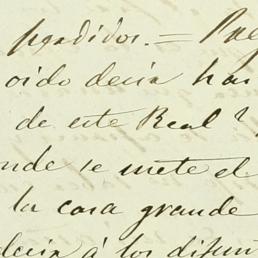 perdidos. = Pre
oido decir han
de este Real?
nde se mete el
la casa grande
decir á los difun